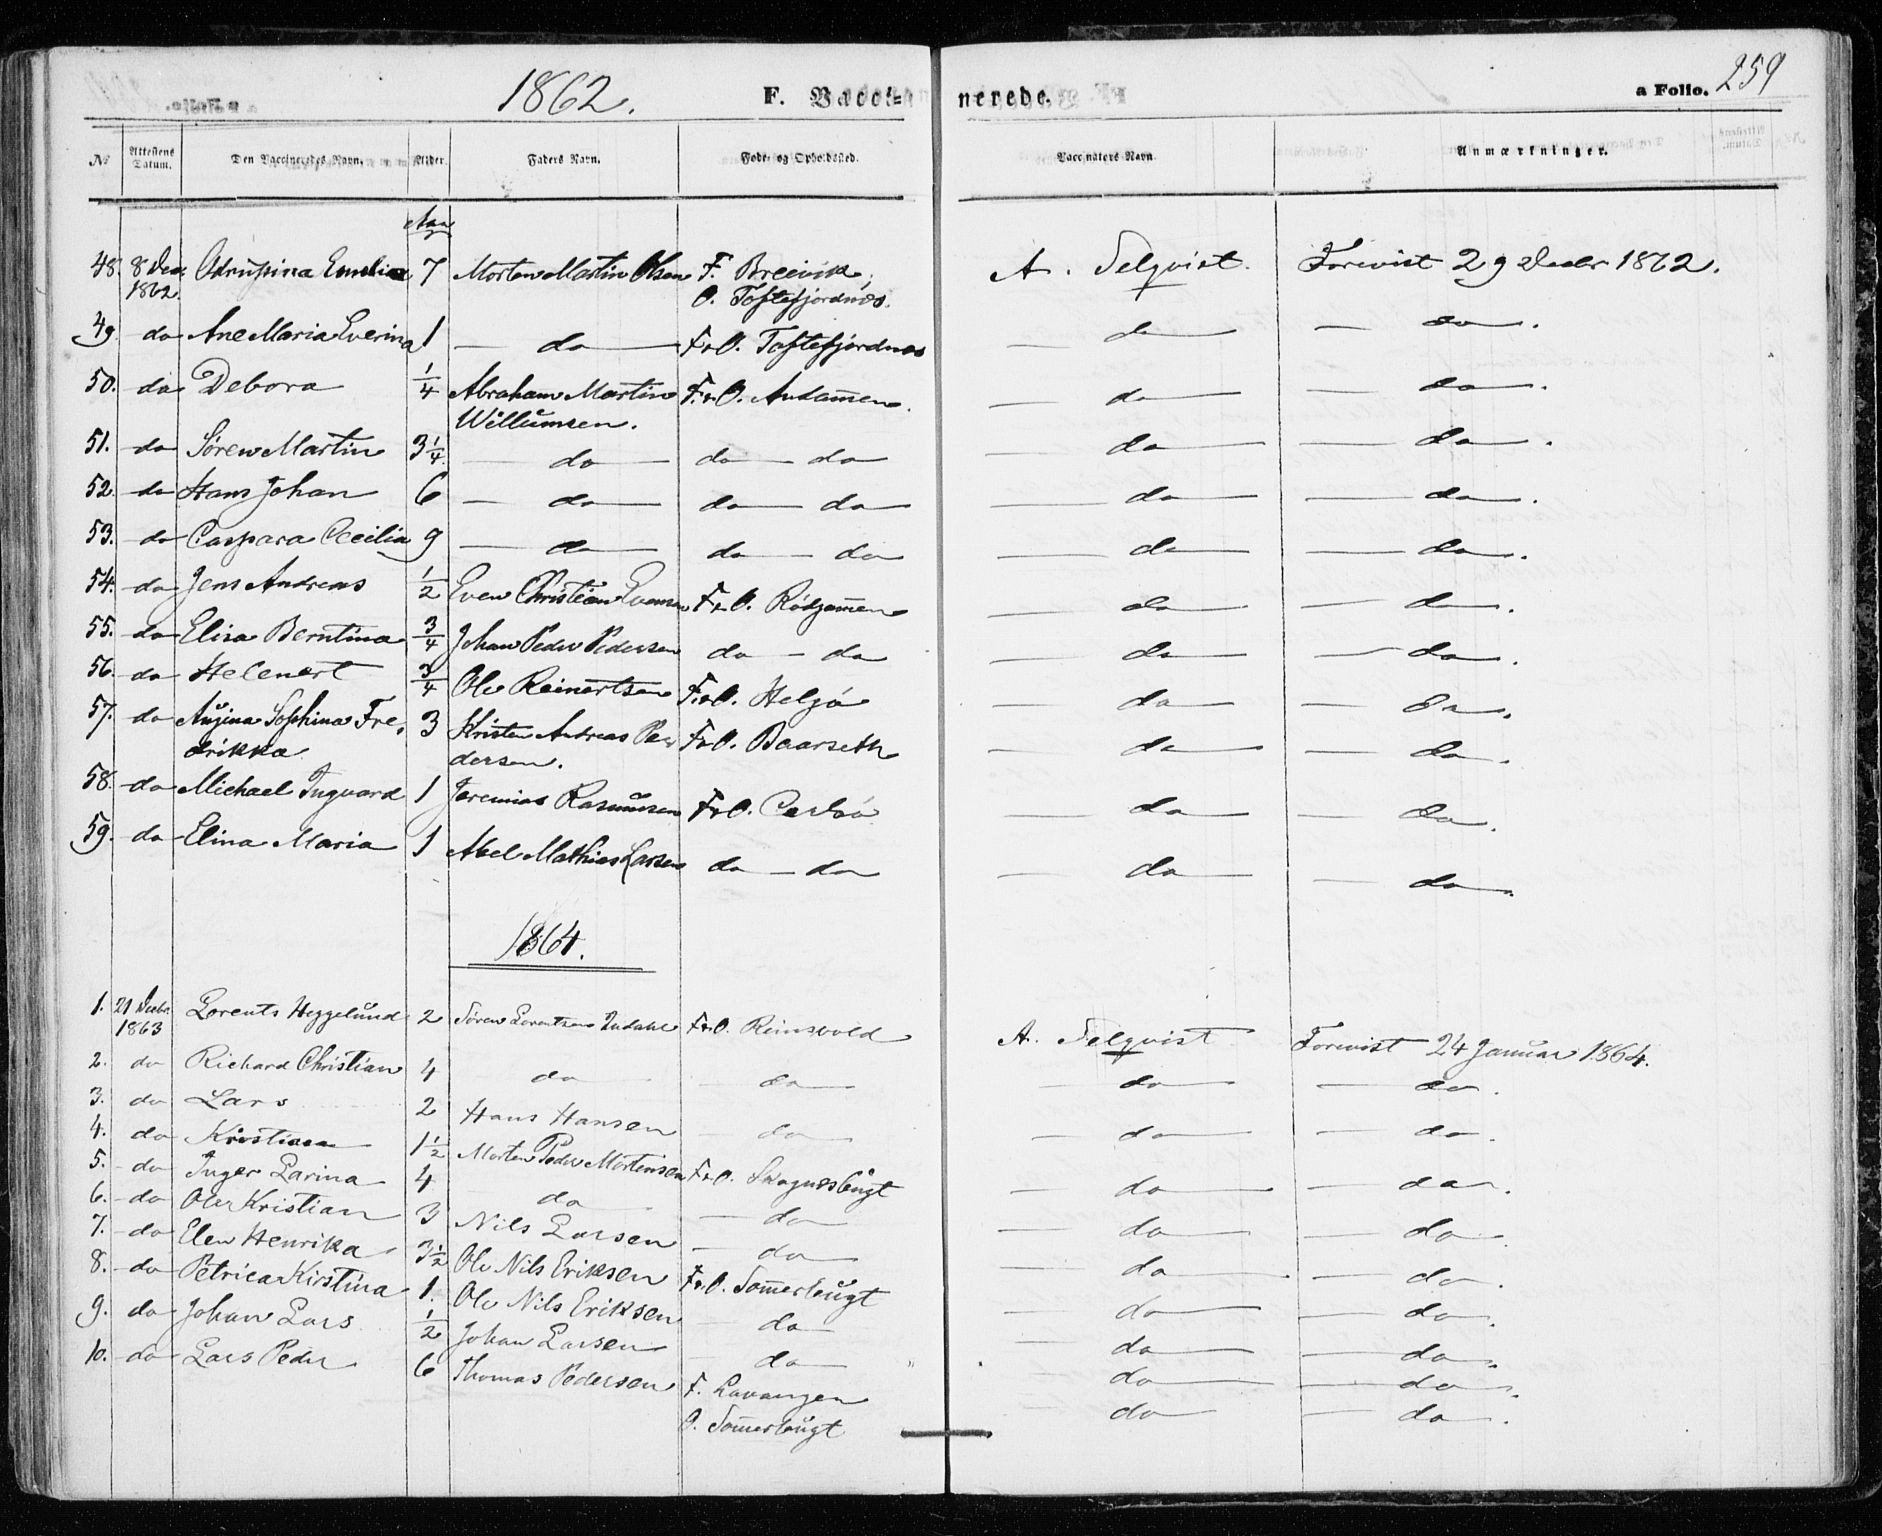 1862. F. Vacci- nerede. a Folio. 259
No Attestens Datum. Den Vaccineredes Navn. Alder. Faders Navn. Føde- og Opholdssted. Vaccinators Navn. Anmærkninger.
Aar
48. 8 Dec. 1862. Emelia 7 Morten Martin Olsen F. Breivik. A. Selqvist. Forevist 29 Decbr 1862.
O. Toftefjordnæs.
49 do Ane Maria Everina 1 — do — F&O. Toftefjordnæs — do — — do.
50. do Debora 1/4 Abraham Martin F.&O. Andammen. — do — — do.
Willumsen.
51. do Søren Martin 3 1/4. — do — do — do — do — — do.
52. do Hans Johan 6 — do — do — do — do — — do.
53. do Caspara Cecilia 9 — do — do — do — do — — do.
54. do Jens Andreas 1/2 Even Christian Evensen F&O. Rödgammen — do — — do.
55. do Elisa Berntina 3/4 Johan Peder Pedersen do — do — do — — do.
56. do Helenert 3/4 Ole Reinertsen F.&O. Helgö — do — — do.
57. do Sophina Fre- 3 Kristen Andreas Pe- F&O. Baarseth — do — — do.
drikka dersen.
58. do Michael Ingvard 1 Jeremias Rasmussen F&O. — do — — do.
59. do Elina Maria 1 Abel Mathias Larsen do — do — do — — do.
1864.
1. 21 Decbr. 1863 Lorents Heggelund 2 Søren Lorentsen F&O. Reinsvold A. Selqvist Forevist 24 Januar 1864.
2. do Richard Christian 4 do — do — — do — — do.
3. do Lars 2 Hans Hansen do — — do — — do.
4. do Kristian 1 1/2 Morten Peder Mortensen F&O. Skognesbugt — do — — do.
5. do Inger Larina 4 do — do — — do — — do.
6. do Ole Kristian 3 Nils Larsen — do — — do — — do.
7. do Elen Henrika 3 1/2 Ole Nils Eriksen F&O. Sommerbugt — do — — do.
8. do Petrica Kirstina 1. Ole Nils Eriksen — do — do — — do.
9. do Johan Lars 1/2 Johan Larsen — do — do — — do.
10. do Lars Peder 6 Thomas Pedersen F. Lavangen do — — do.
O. Sommerbugt